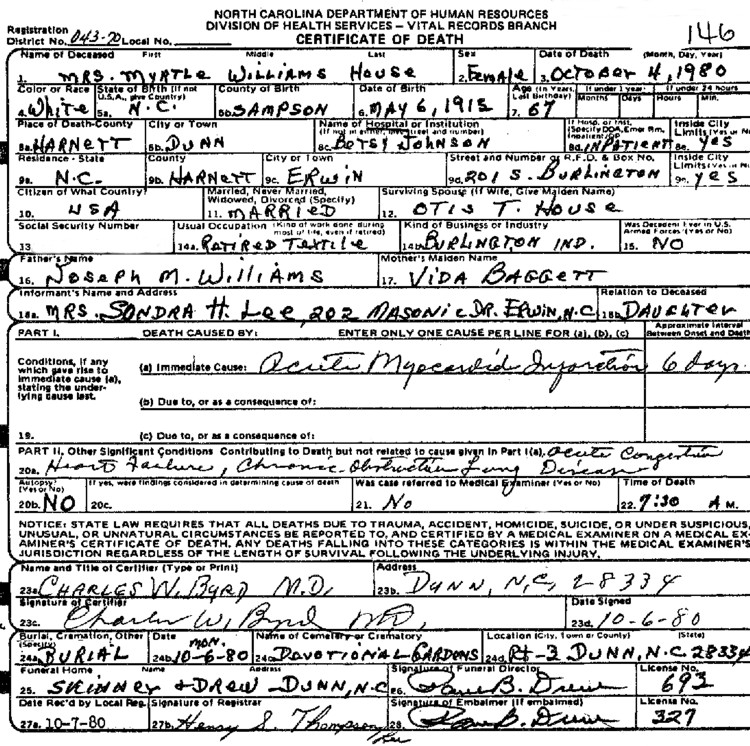 NORTH CAROLINA DEPARTMENT OF HUMAN RESOURCES
DIVISION OF HEALTH SERVICES – VITAL RECORDS BRANCH
CERTIFICATE OF DEATH
146
Registration District No. 043-70 Local No.
Name of Deceased First Middle Last Sex Date of Death (Month, Day, Year)
1. MRS. MYRTLE WILLIAMS HOUSE 2. FEMALE 3. OCTOBER 4, 1980
Color or Race State of Birth (If not U.S.A., give Country) County of Birth Date of Birth Age (In Years, Last Birthday) If under 1 year Months Days If under 24 hours Hours Min.
4. White 5a. N.C. 5b. SAMPSON 6. MAY 6, 1915 7. 67
Place of Death-County City or Town Name of Hospital or Institution (If not in either, give street and number) If Hosp. or Inst. (Specify DOA, Emer Rm, Inpatient, OP Inside City Limits (Yes or No
8a. HARNETT 8b. DUNN 8c. BETSY JOHNSON 8d. INPATIENT 8e. YES
Residence - State County City or Town Street and Number or R.F.D. & Box No. Inside City Limits (Yes or No
9a. N.C. 9b. HARNETT 9c. ERWIN 9d. 201 S. BURLINGTON 9e. YES
Citizen of What Country? Married, Never Married, Widowed, Divorced (Specify) Surviving Spouse (If Wife, Give Maiden Name)
10. USA 11. MARRIED 12. OTIS T. HOUSE
Social Security Number Usual Occupation (Kind of work done during most of life, even if retired) Kind of Business or Industry Was Decedent Ever in U.S. Armed Forces? (Yes or No)
13 14a. RETIRED TEXTILE 14b. BURLINGTON IND. 15. NO
Father's Name Mother's Maiden Name
16. JOSEPH M. WILLIAMS 17. VIDA BAGGETT
Informant's Name and Address Relation to Deceased
18a. MRS. SONDRA H. LEE, 202 MASONIC DR. ERWIN, N.C 18b. DAUGHTER
PART I. DEATH CAUSED BY: ENTER ONLY ONE CAUSE PER LINE FOR (a), (b), (c) Approximate Interval Between Onset and Death
Conditions, if any which gave rise to immediate cause (a), stating the underlying cause last.
(a) Immediate Cause: Acute Myocardial Infarction 6 days
(b) Due to, or as a consequence of:
19. (c) Due to, or as a consequence of:
PART II. Other Significant Conditions Contributing to Death but not related to cause given in Part I(a). Acute Congestive
20a. Heart Failure, Chronic Obstructive Lung Disease
Autopsy? (Yes or No) If yes, were findings considered in determining cause of death Was case referred to Medical Examiner (Yes or No) Time of Death
20b. NO 20c. 21. No 22. 7:30 A M.
NOTICE: STATE LAW REQUIRES THAT ALL DEATHS DUE TO TRAUMA, ACCIDENT, HOMICIDE, SUICIDE, OR UNDER SUSPICIOUS,
UNUSUAL, OR UNNATURAL CIRCUMSTANCES BE REPORTED TO, AND CERTIFIED BY A MEDICAL EXAMINER ON A MEDICAL EX-
AMINER'S CERTIFICATE OF DEATH. ANY DEATHS FALLING INTO THESE CATEGORIES IS WITHIN THE MEDICAL EXAMINER'S
JURISDICTION REGARDLESS OF THE LENGTH OF SURVIVAL FOLLOWING THE UNDERLYING INJURY.
Name and Title of Certifier (Type or Print) Address
23a. CHARLES W. BYRD M.D. 23b. DUNN, N.C, 28334
Signature of Certifier Date Signed
23c. Charles W. Byrd MD, 23d. 10-6-80
Burial, Cremation, Other (Specify) Date MON. Name of Cemetery or Crematory Location (City, Town or County) (State)
24a. BURIAL 24b. 10-6-80 24c. DEVOTIONAL GARDENS 24d. Rt-3 DUNN, N.C. 28334
Funeral Home Name Address Signature of Funeral Director License No.
25. SKINNER + DREW - DUNN, N.C 26. B. Drew 693
Date Rec'd by Local Reg. Signature of Registrar Signature of Embalmer (If embalmed) License No.
27a. 10-7-80 27b. Henry S. Thompson 28. B. Drew 327